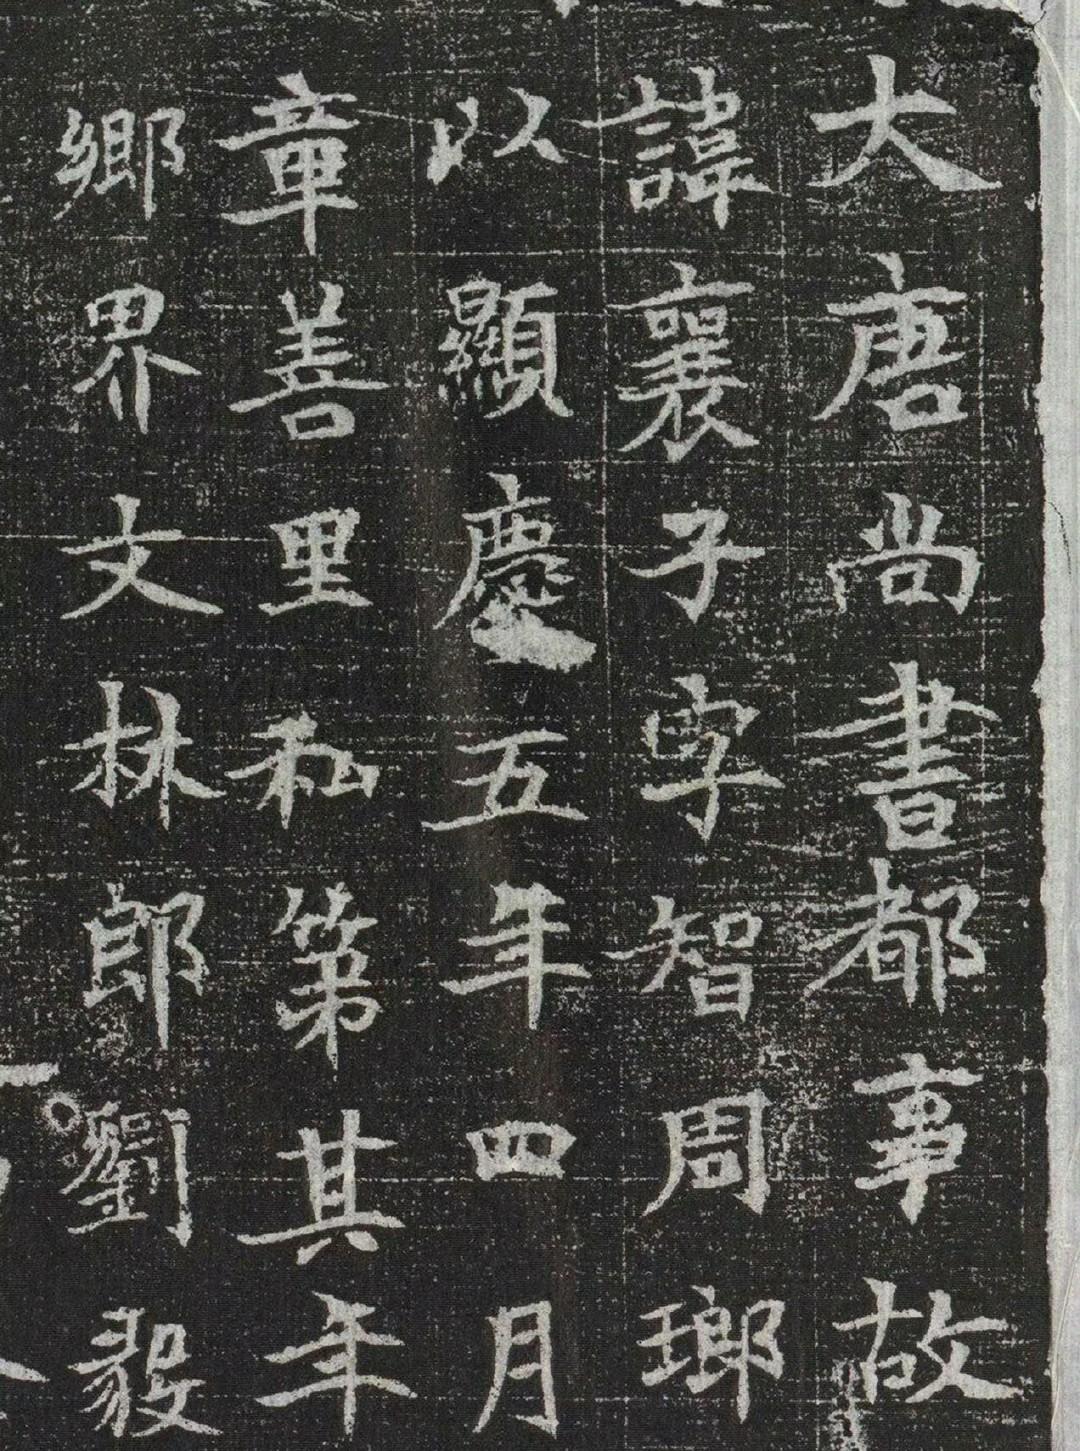 大唐尚書都事故
諱襄子字智周瑯
以顯慶五年四月
章善里私第其年
鄉界文林郎劉毅